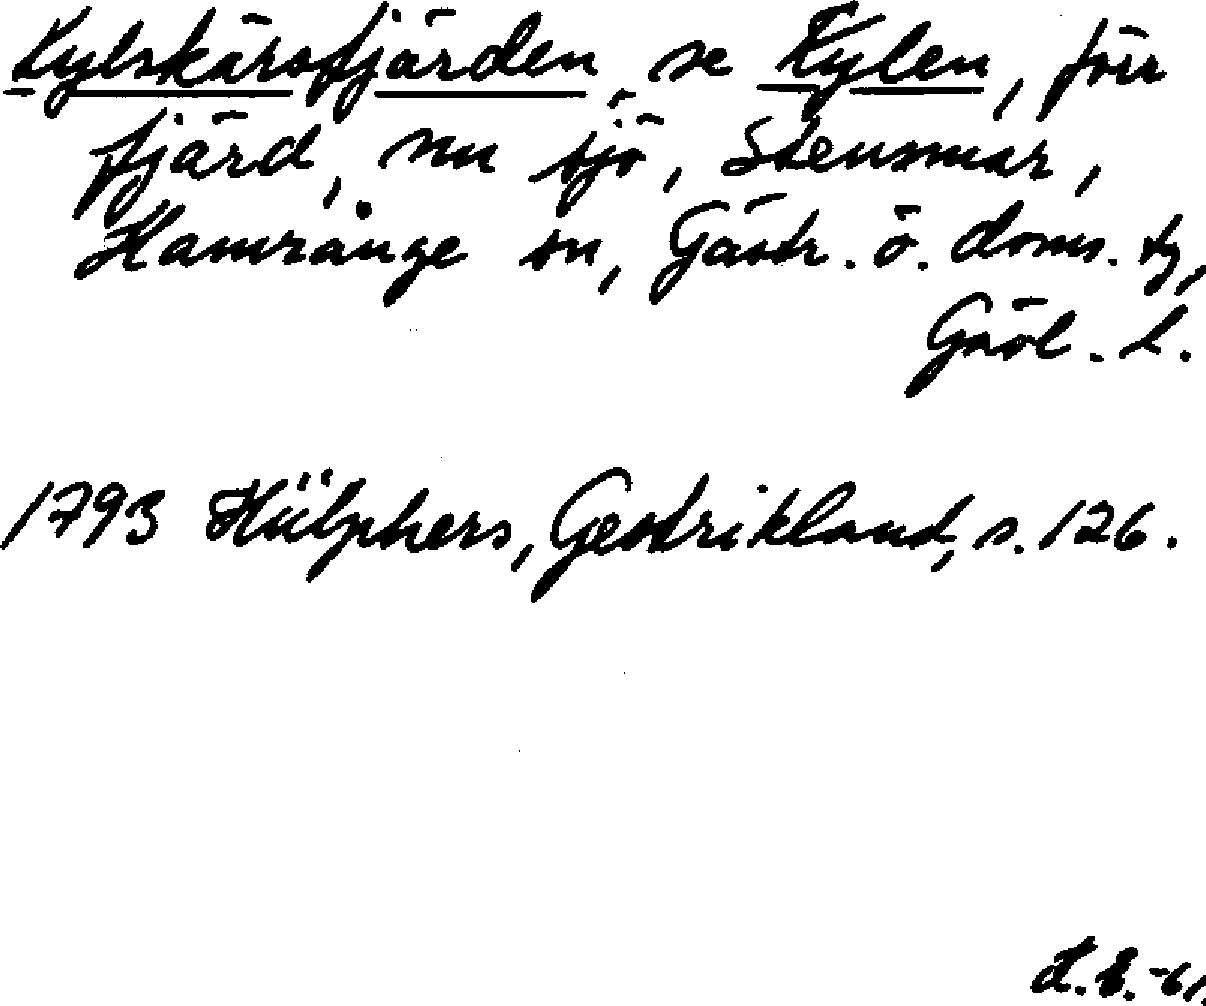 Kylskärsfjärden, se Kylen, förr
fjärd, nu sjö, Stensmar,
Hamrånge sn, Gästr. ö. doms. tg,
Gävl. l.
1793 Hülphers, Gestrikland, s. 126.